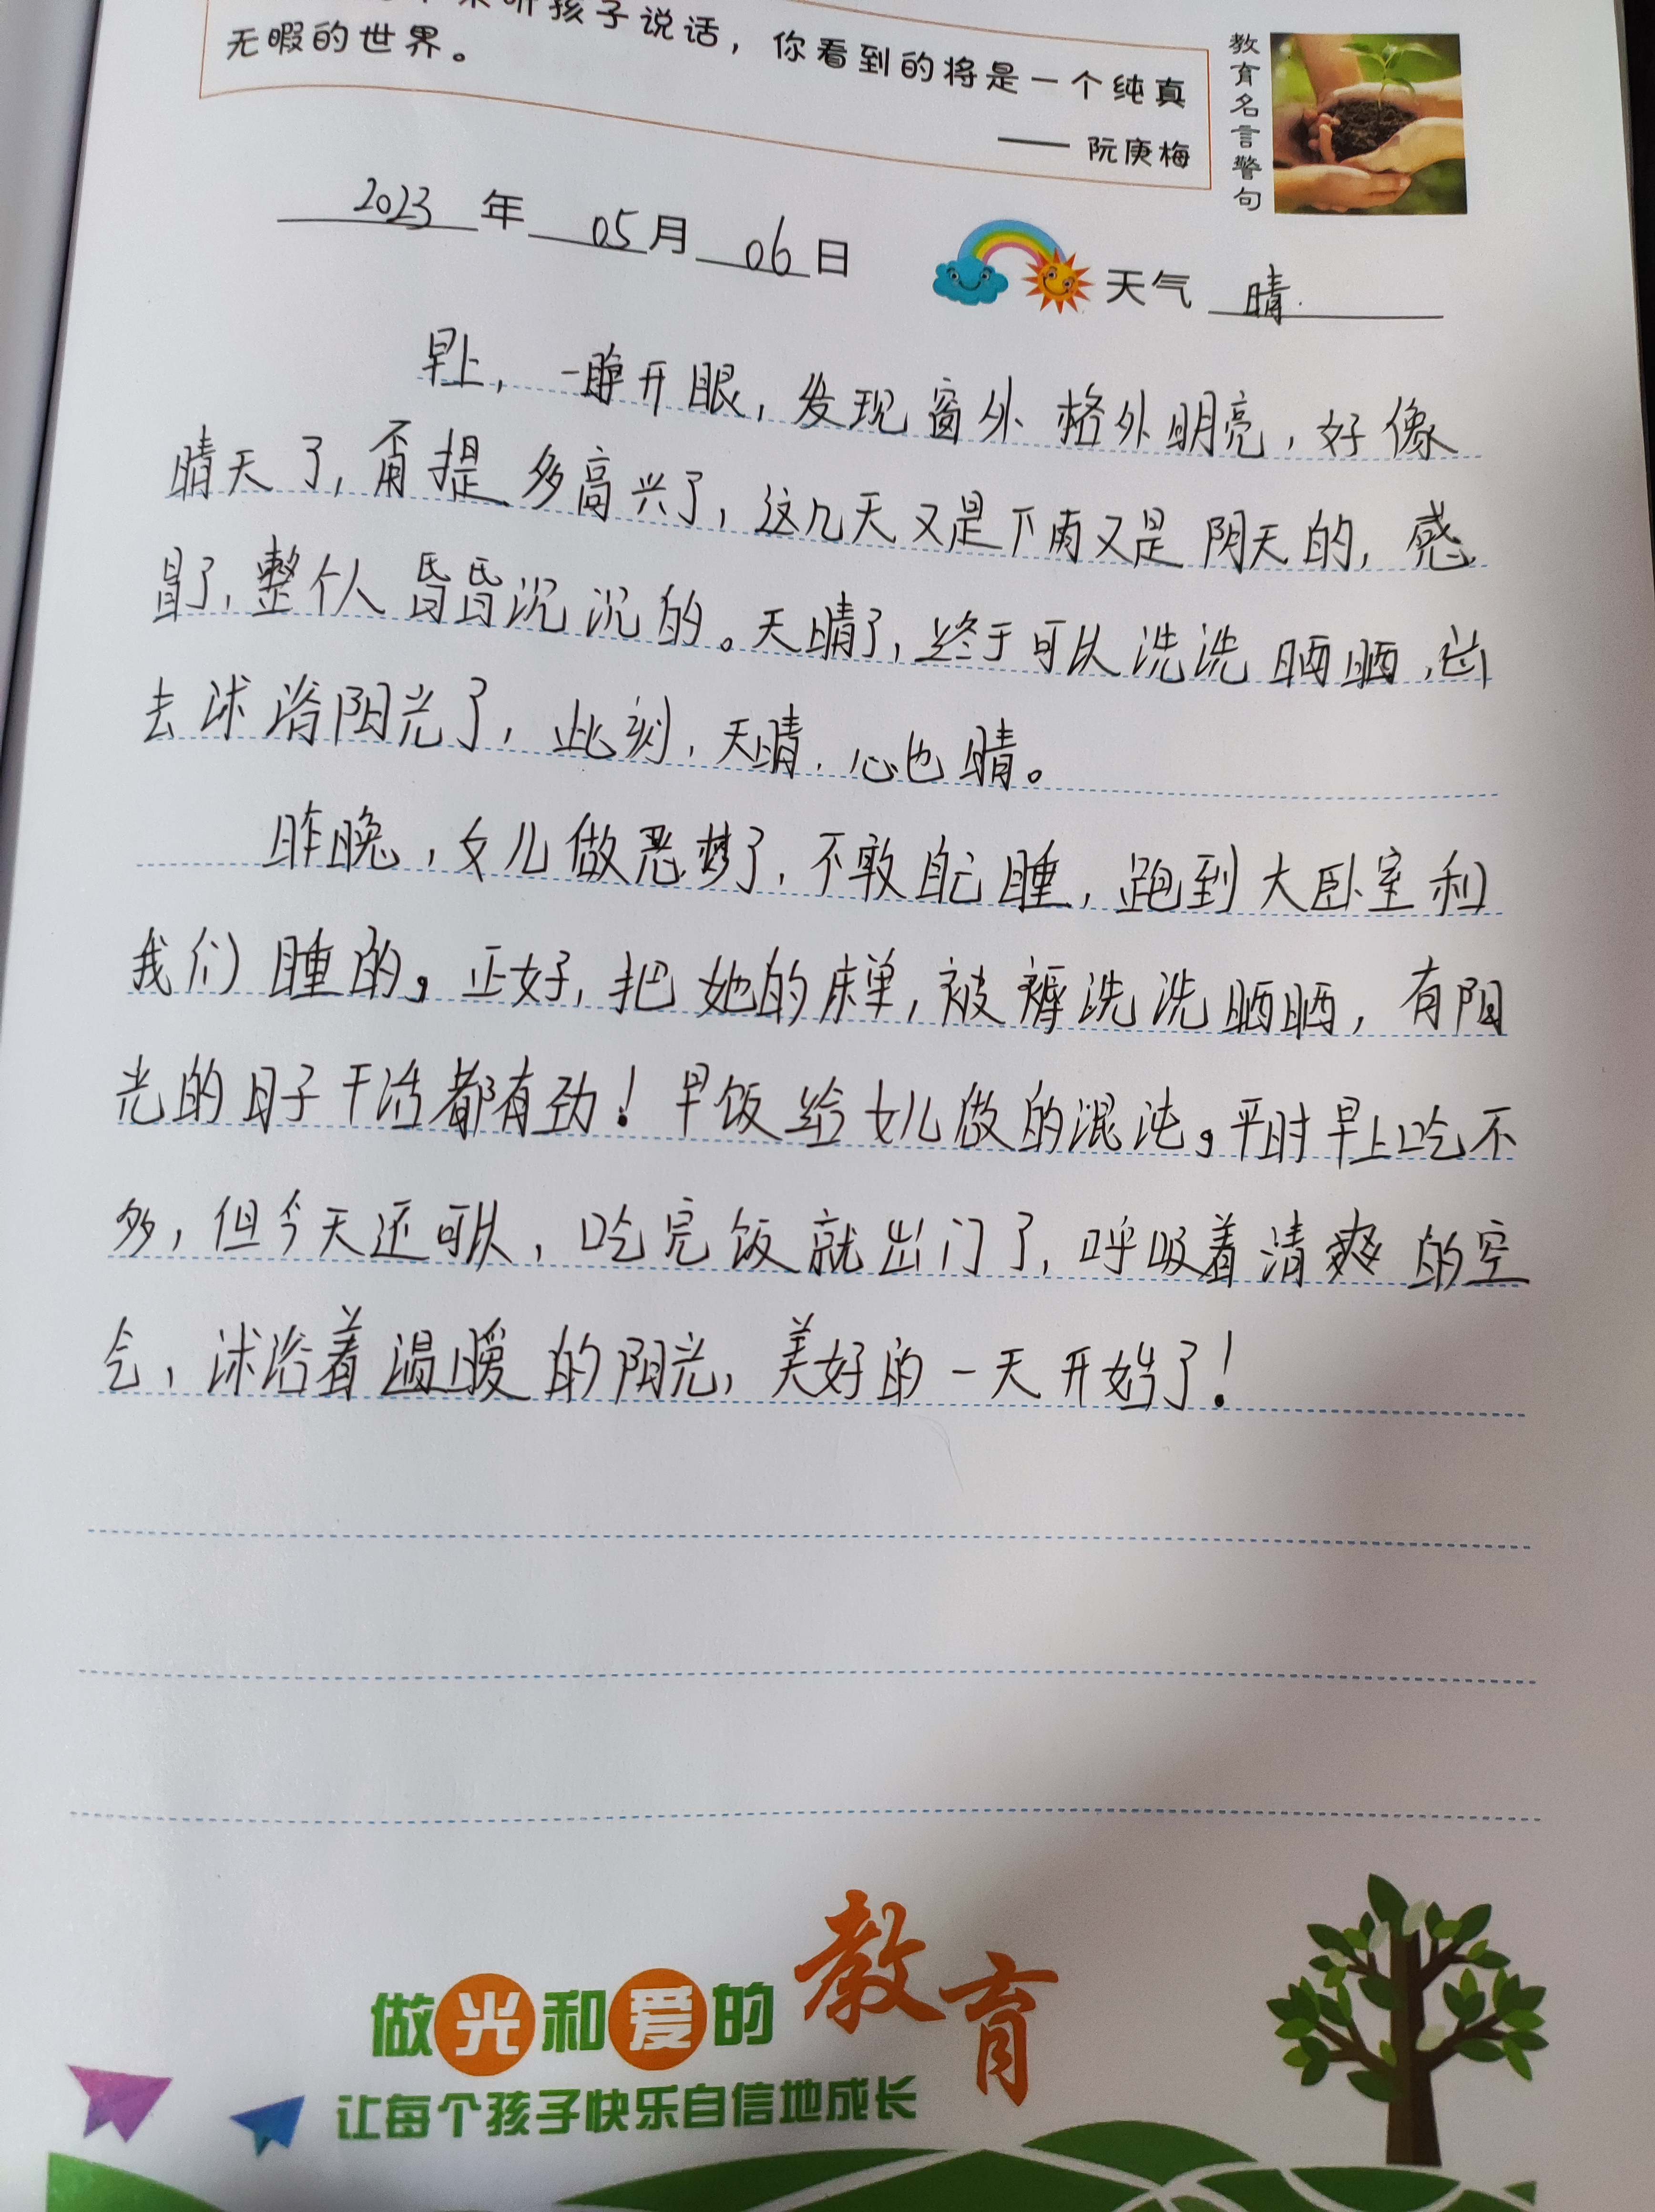 来听孩子说话，你看到的将是一个纯真
无暇的世界。
—— 阮庚梅
教育名言警句
2023年05月06日
天气 晴.
早上，一睁开眼，发现窗外格外明亮，好像
晴天了，甭提多高兴了，这几天又是下雨又是阴天的，感
冒了，整个人昏昏沉沉的。天晴了，终于可以洗洗晒晒，出
去沐浴阳光了，此刻，天晴，心也晴。
昨晚，女儿做恶梦了，不敢自己睡，跑到大卧室和
我们睡的。正好，把她的床单，被褥洗洗晒晒，有阳
光的日子干活都有劲！早饭给女儿做的混沌。平时早上吃不
多，但今天还可以，吃完饭就出门了，呼吸着清爽的空
气，沐浴着温暖的阳光，美好的一天开始了！
做光和爱的教育
让每个孩子快乐自信地成长